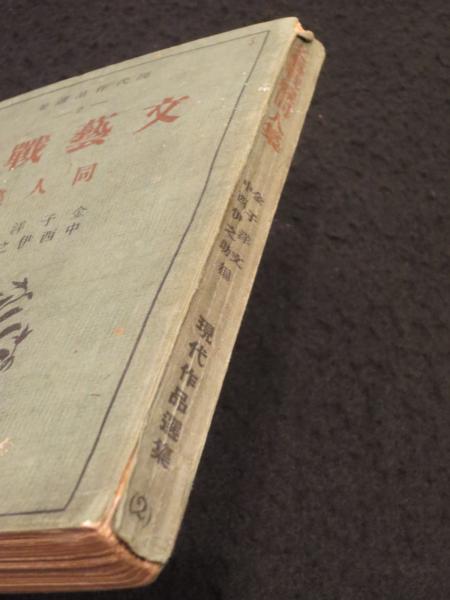 現代作品選集
文藝戰
同人
金子洋
中西伊之
金子洋文
中西伊之助編
現代作品選集
(2)